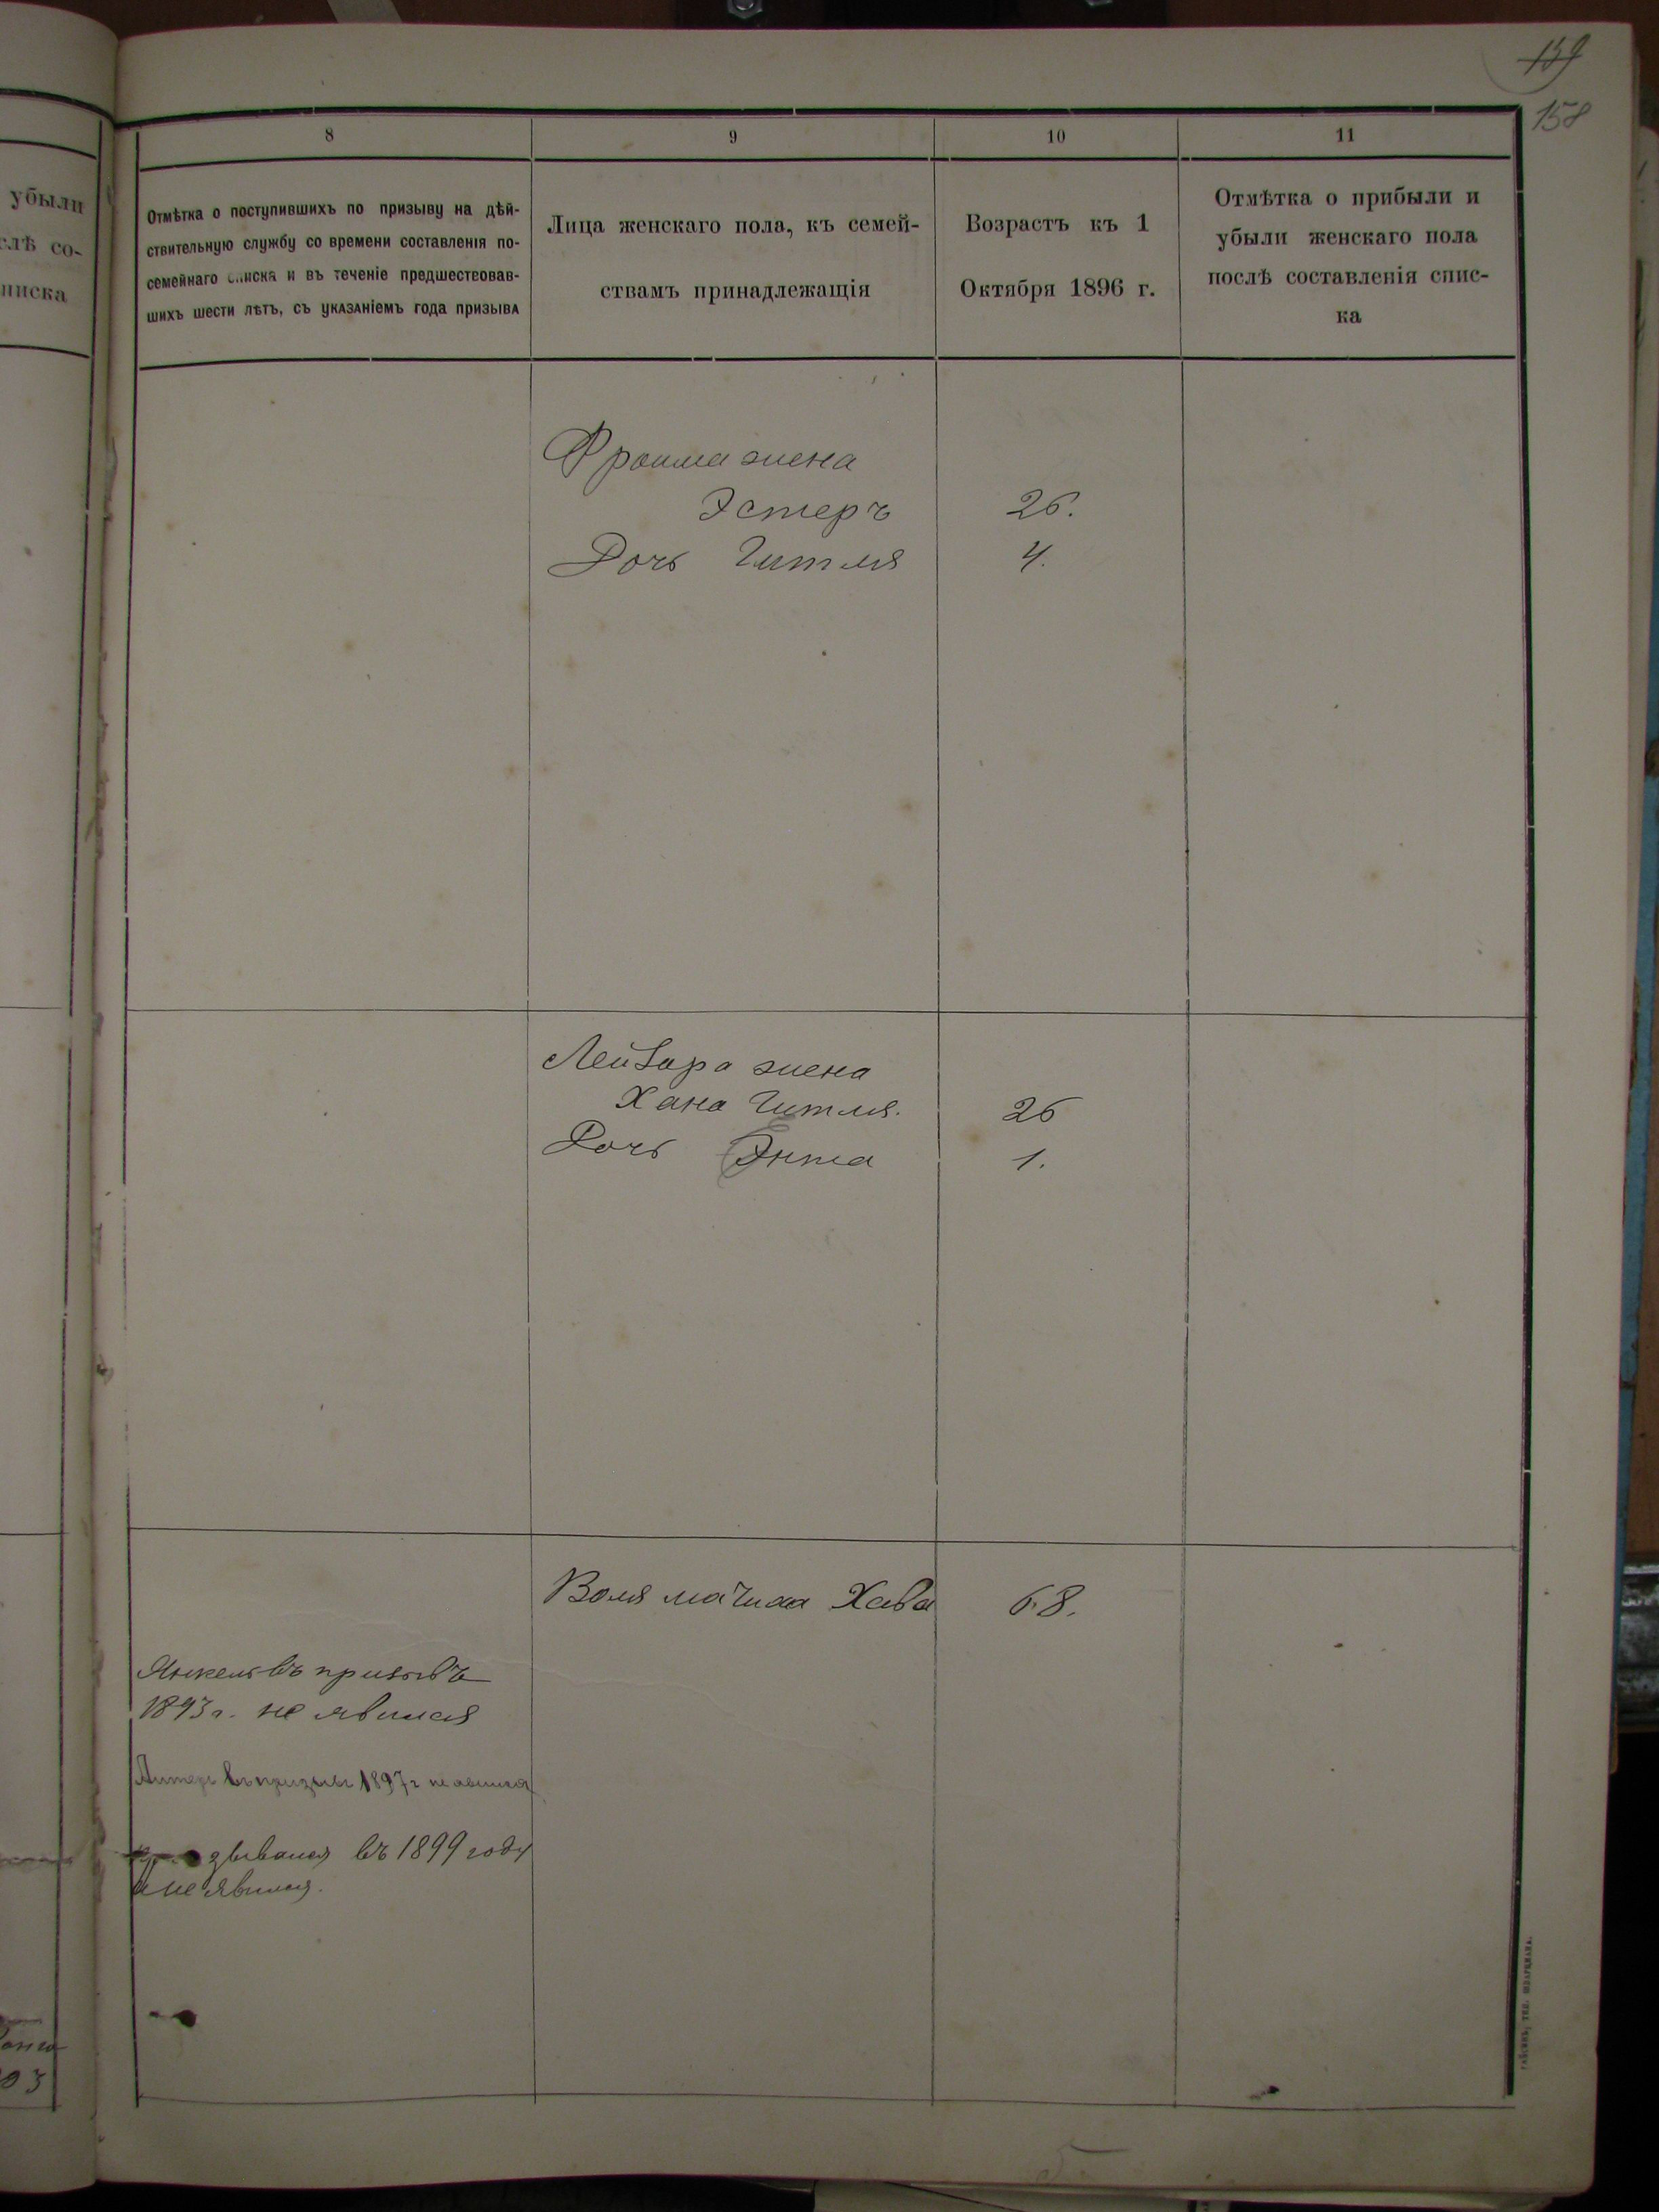 159
158
8
9
10
11
убыли
слѣ со-
писка
Отмѣтка о поступившихъ по призыву на дѣй-
ствительную службу со времени составленія по-
семейнаго списка и въ теченіе предшествовав-
шихъ шести лѣтъ, съ указаніемъ года призыва
Лица женскаго пола, къ семей-
ствамъ принадлежащія
Возрастъ къ 1
Октября 1896 г.
Отмѣтка о прибыли и
убыли женскаго пола
послѣ составленія спис-
ка
Фроима жена
Эстеръ 26.
Дочь Гитля 4.
Лейзара жена
Хана Гитля. 26
Дочь Энта 1.
Воля мачиха Хава 68.
Янкель въ призывъ
1893 г. не явился
въ призывъ 1897 г не явился
зывался въ 1899 году
и не явился.
03